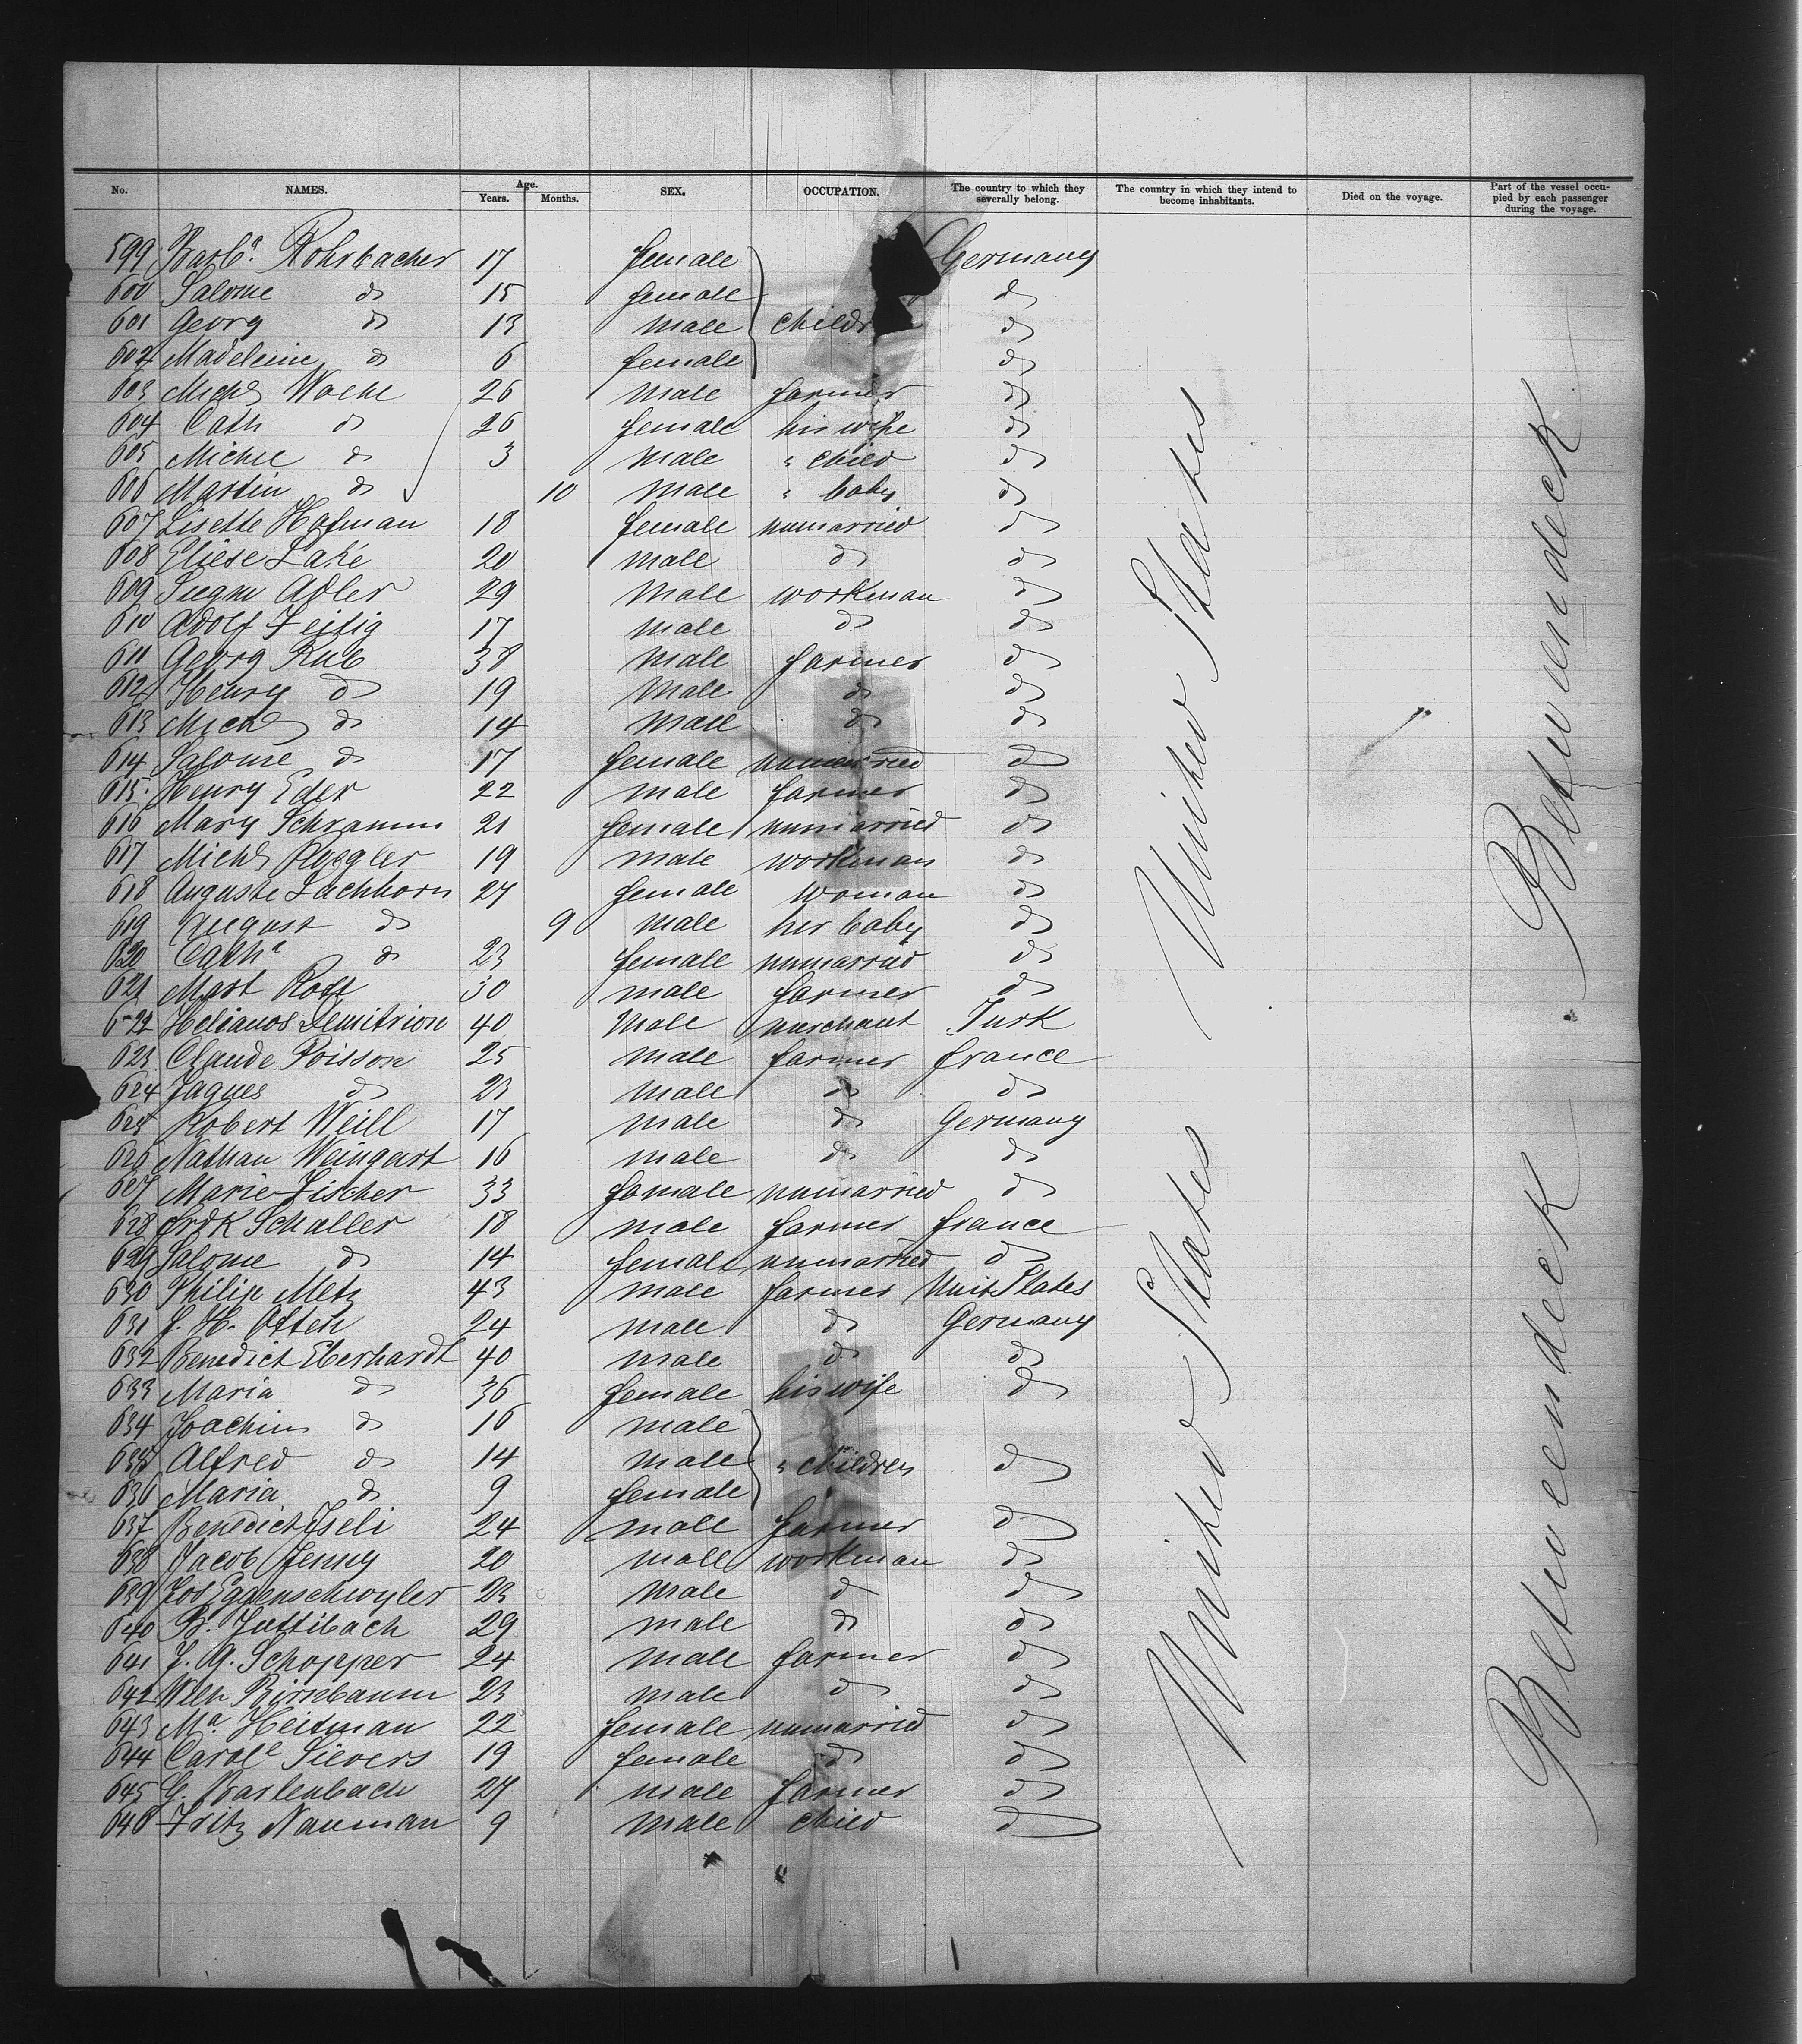 No. NAMES. Age. Years. Months. SEX. OCCUPATION. The country to which they severally belong. The country in which they intend to become inhabitants. Died on the voyage. Part of the vessel occupied by each passenger during the voyage.
599 Barbª Rohrbacher 17 female Germany
600 Salome do 15 female do
601 Georg do 13 male children do
602 Madeleine do 6 female do
603 Michl 26 male farmer do
604 Cath do 26 female his wife do
605 Michel do 3 male " child do
606 Martin do 10 male " baby do
607 Lisette Hofman 18 female unmarried do
608 Eliese Lake 20 male do do
609 Adler 29 male workman do
610 Adolf Zeisig 17 male do do
611 Georg Kub 38 male farmer do
612 Henry do 19 male do do
613 Michl do 14 male do do
614 Salome do 17 female unmarried do
615 Henry Eder 22 male farmer do
616 Mary Schramm 21 female unmarried do
617 Michl 19 male workman do
618 Auguste Lachhorn 27 female woman do
619 August do 9 male her baby do
620 Cathe do 23 female unmarried do
621 Mart 30 male farmer do
622 Helianos Demitrion 40 male merchant Turk
623 Claude Poisson 25 male farmer france
624 Jaques do 23 male do do
625 Robert Weill 17 male do Germany
626 Nathan Weingart 16 male do do
627 Marie Fischer 33 female unmarried do
628 Frdk Schaller 18 male farmer france
629 Salome do 14 female unmarried do
630 Philip Metz 43 male farmer Unit States
631 J. H. Otten 24 male do Germany
632 Benedict Eberhardt 40 male do do
633 Maria do 36 female his wife do
634 Joachim do 16 male
635 Alfred do 14 male " children do
636 Maria do 9 female
637 Benedict Iseli 24 male farmer do
638 Jacob Jenny 20 male workman do
639 Jos Eggenschwyler 23 male do do
640 B. Juttibach 29 male do do
641 J. G. Schopper 24 male farmer do
642 Wilh Birnbaum 23 male do do
643 Mª Heitman 22 female unmarried do
644 Carole Sievers 19 female do do
645 G. Bartenbach 27 male farmer do
646 Fritz Nauman 9 male child do
United States
United States
Betweendeck
Betweendeck